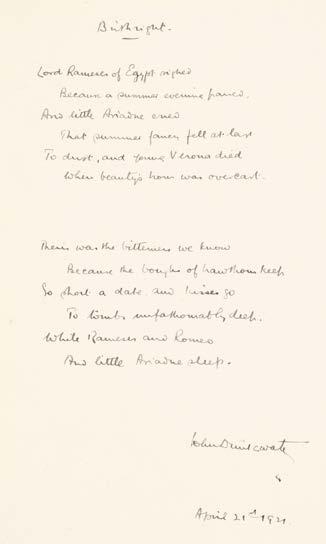 Birthright.
Lord Rameses of Egypt sighed
Because a summer evening passed.
And little Ariadne cried
That summer fancy fell at last
To dust, and young Verona died
When beauty's hour was overcast.
Theirs was the bitterness we know
Because the boughs of hawthorn keep
So short a date, and kisses go
To tombs unfathomably deep.
While Rameses and Romeo
And little Ariadne sleep.
John Drinkwater
April 21st 1921.